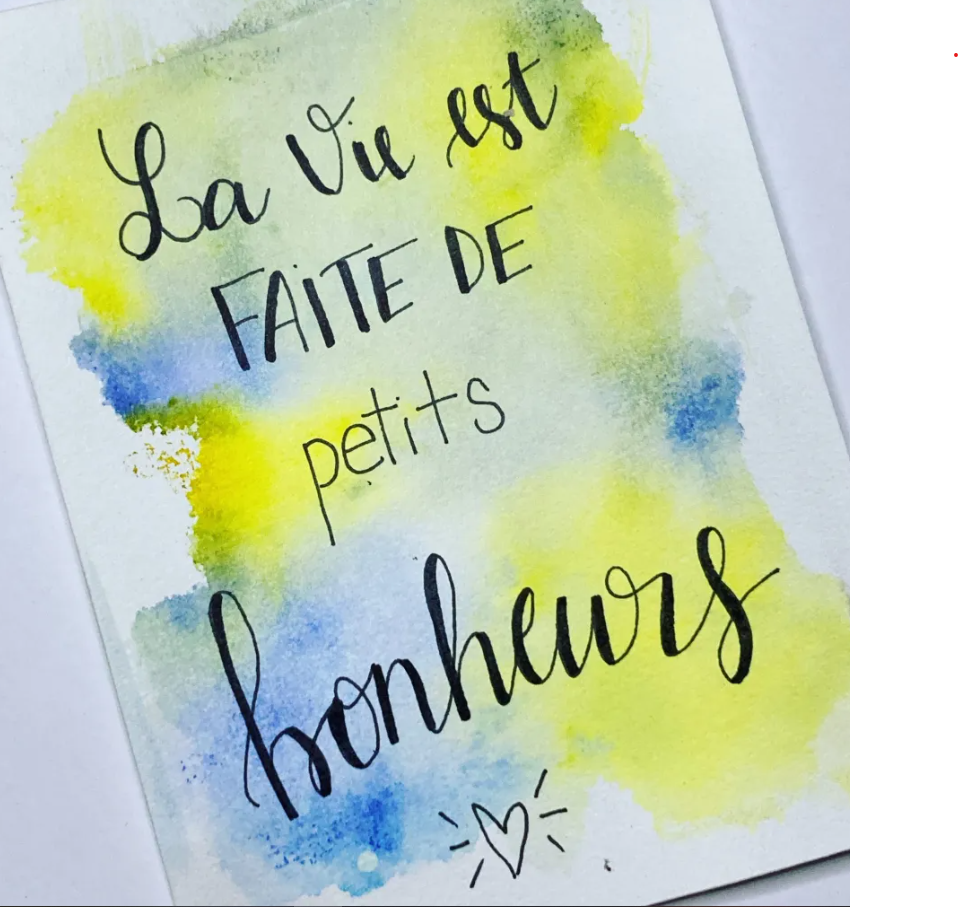 La Vie est
FAiTE DE
petits
bonheurs